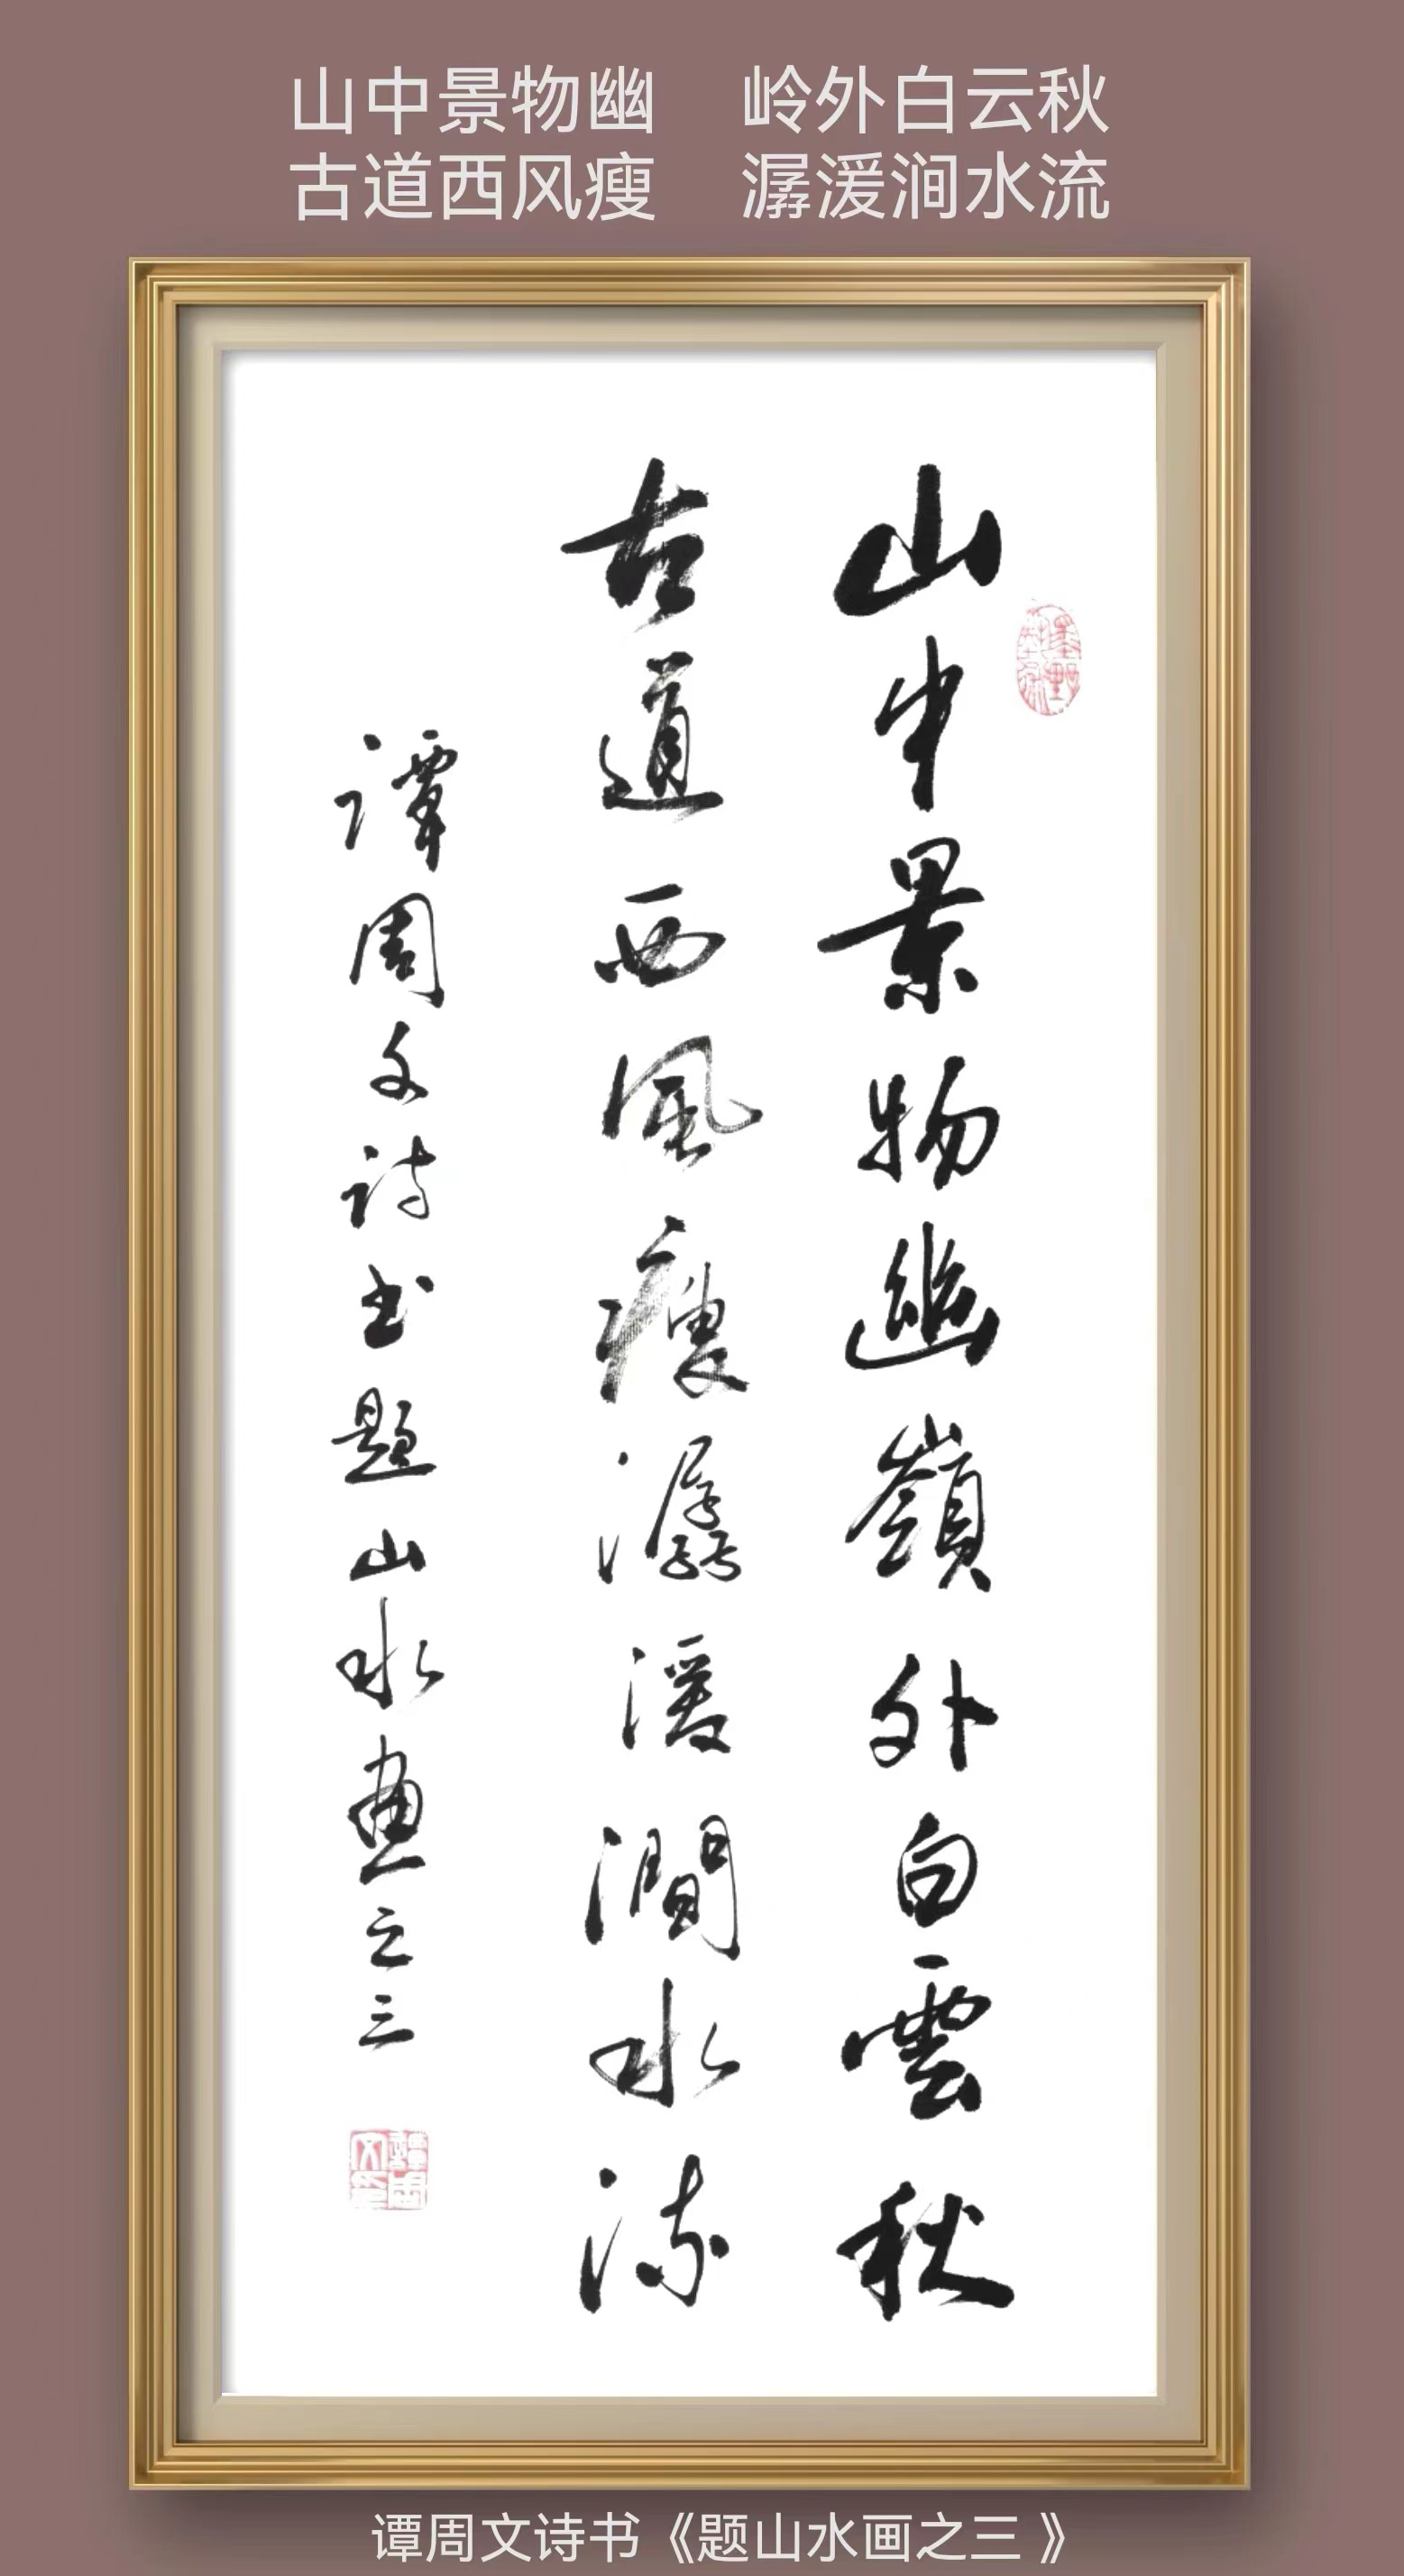 山中景物幽 岭外白云秋
古道西风瘦 潺湲涧水流
山中景物幽嶺外白雲秋
古道西風瘦潺湲澗水流
譚周文诗书题山水畫之三
谭周文诗书《题山水画之三》